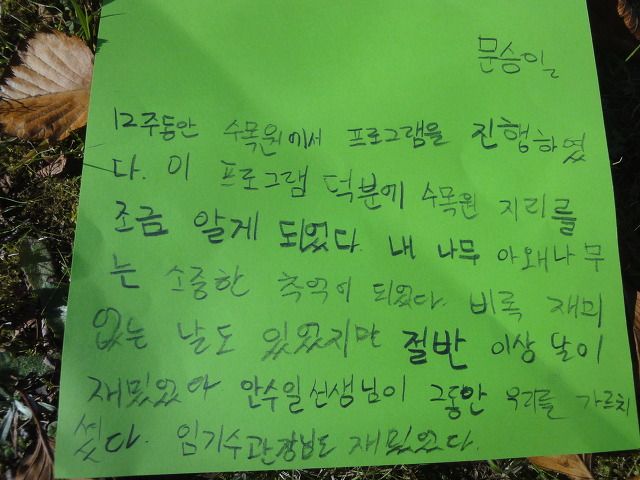 문승일
12주동안 수목원에서 프로그램을 진행하였
다. 이 프로그램 덕분에 수목원 지리를
조금 알게 되었다. 내 나무 아왜나무
는 소중한 추억이 되었다. 비록 재미
없는 날도 있었지만 절반 이상 날이
재밌었아 안수일선생님이 그동안 우리를 가르치
셨다. 임기수관장님도 재밌었다.